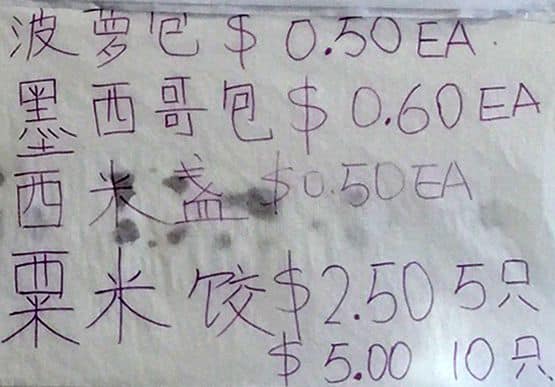 波萝包 $ 0.50 EA.
墨西哥包 $ 0.60 EA
西米盏 $0.50 EA
粟米饺 $2.50 5只
$ 5.00 10只